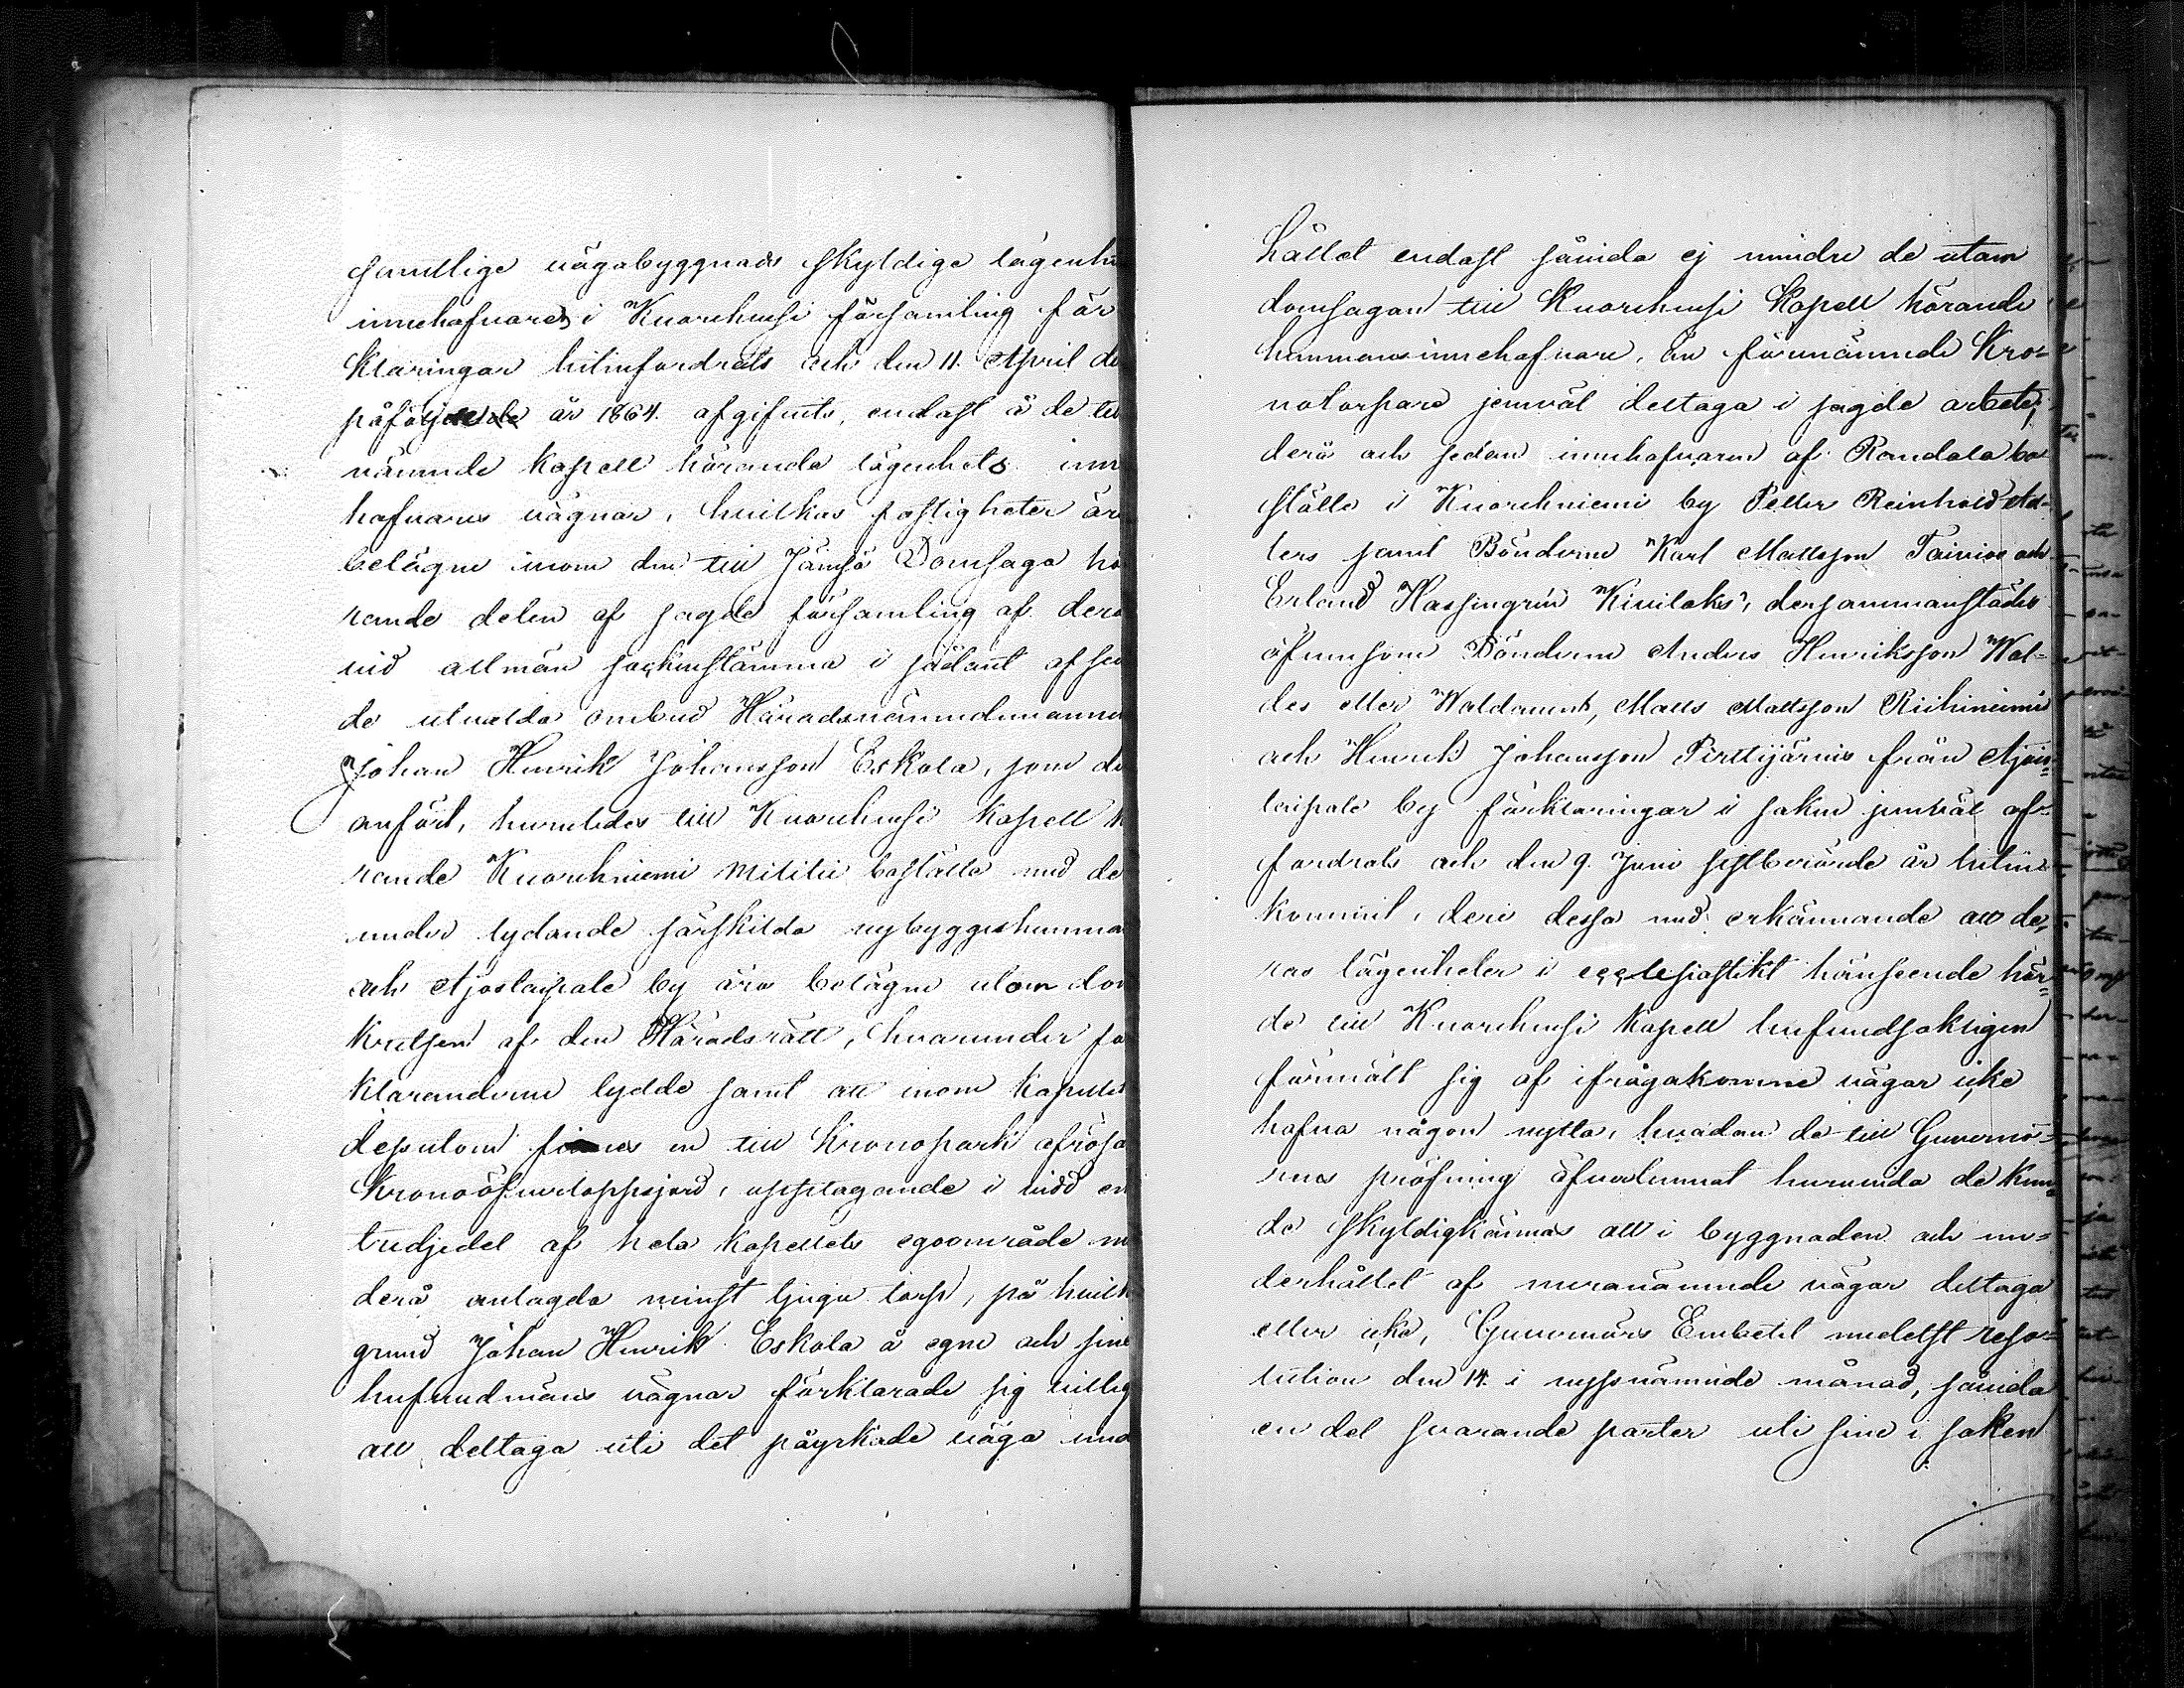 samtlige vägabyggnads skyldige lägenh
innehafvares i Kuorehvesi församling för
klaringar hitinfordrats och den 11. April de
påföljande år 1864. afgifvits, endast å de till
nämnde kapell hörande lägenhets inne
hafvares vägnar, hvilkas fastigheter är
belägne inom den till Jämsä Domsaga hö
rande delen af sagde församling af dera
vid allmän sockenstämma i sådant afse
de utvalda ombud Häradsnämndemannen
Johan Henrik Johansson Eskola, som de
anfört, hurulides till Kuorehvesi kapell h
rande Kuorehniemi militie boställe med de
under lydande särskilda nybyggeshemma
och Ajoslaipale by äro belägne utom dom
kretsen af den Häradsrätt, hvarunder fö
klaranderne lydde samt att inom kapellet
desutom finnes en till Kronopark afrösa
Kronoöfverloppsjord, upptagande i vidd en
tredjedel af hela kapellets egoområde m
derå anlagda minst tjugu torp, på hvilk
grund Johan Henrik Eskola å egne och sine
hufvudmäns vägnar förklarade sig villig
att deltaga uti det påyrkade väga und
hållet endast såvida ej mindre de utom
domsagan till Kuorehvesi Kapell hörande
hemmansinnehafvare, än förenämnde Kro-
notorpare jemväl deltaga i sagde arbete;
derå och sedan innehafvaren af Pandala bo
ställe i Kuorehniemi by Petter Reinhold Ad-
lers samt Bönderne Karl Mattsson Taivios och
Erland Hassingrens Kivilaks, dersammanstädes
äfvensom Bönderne Anders Henriksson Wal-
des eller Waldarens, Matts Mattsson Riihiniemis
och Henrik Johansson Pirttijärvis från Ajos-
laipale by förklaringar i saken jemväl af-
fordrats och den 9. Juni sistberörde år hitin-
kommit, deri dessa med erkännande att de-
ras lägenheter i ecclesiastikt hänseende hör-
de till Kuorehvesi Kapell hufvudsakligen
förmält sig af ifrågakomne vägar icke
hafva någon nytta, hvadan de till Guvernö-
rens pröfning öfverlemnat huruvida de kun-
de skyldigkännas att i byggnaden och un-
derhållet af meranämnde vägar deltaga
eller icke, Guvernörs Embetet medelst reso-
lution den 14. i nyssnämnde månad, såvida
en del svarande parter uti sine i saken